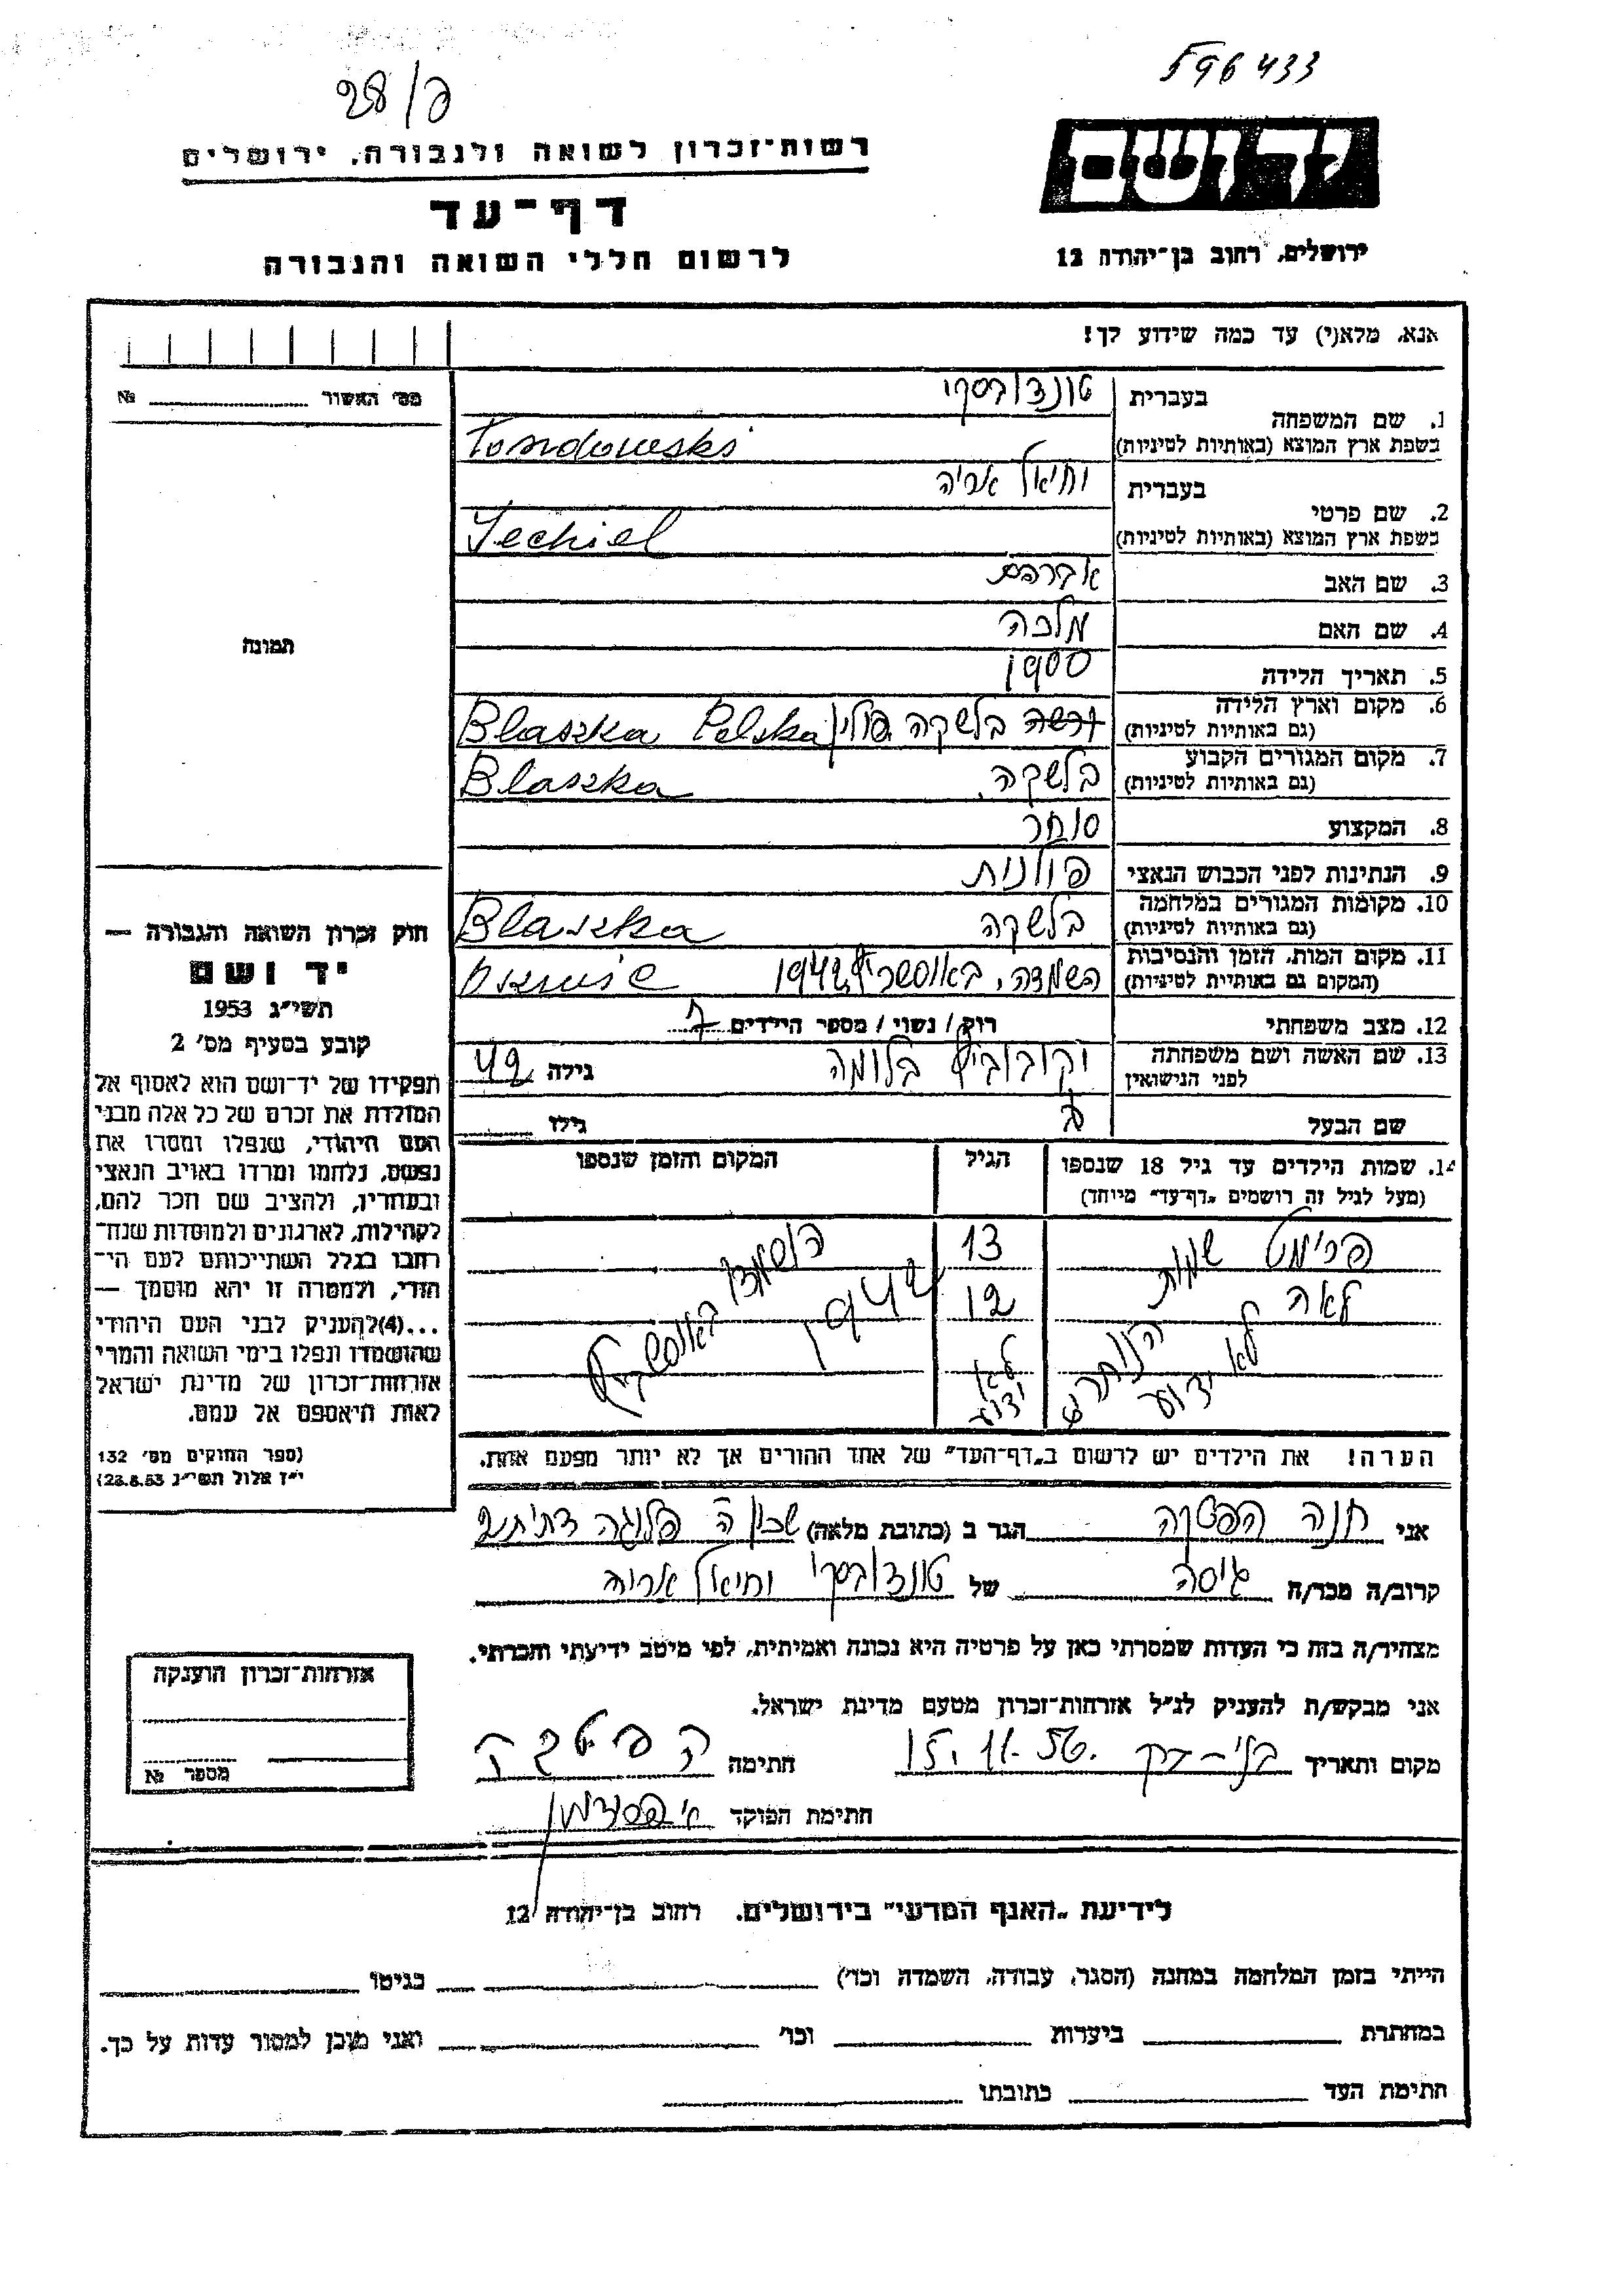 596433
28/פ
יד ושם
רשות־זכרון לשואה ולגבורה, ירושלים
דף־עד
לרשום חללי השואה והגבורה
ירושלים, רחוב בן־יהודה 12
אנא, מלא(י) עד כמה שידוע לך!
מס׳ האשור № 
1. שם המשפחה בעברית טונדובסקי
בשפת ארץ המוצא (באותיות לטיניות) Tondowski
2. שם פרטי בעברית יחיאל אריה
בשפת ארץ המוצא (באותיות לטיניות) Jechiel
3. שם האב אברהם
4. שם האם מלכה
5. תאריך הלידה 1900
6. מקום וארץ הלידה (גם באותיות לטיניות) ורשה בלשקה פולין Blaszka Polska
7. מקום המגורים הקבוע (גם באותיות לטיניות) בלשקה Blaszka
8. המקצוע סוחר
9. הנתינות לפני הכבוש הנאצי פולנית
10. מקומות המגורים במלחמה (גם באותיות לטיניות) בלשקה Blaszka
11. מקום המות, הזמן והנסיבות (המקום גם באותיות לטיניות) השמדה, באושוויץ 1942
12. מצב משפחתי רוק / נשוי / מספר הילדים 7
13. שם האשה ושם משפחתה לפני הנישואין יקובוביץ בלומה גילה 42
שם הבעל גילו
14. שמות הילדים עד גיל 18 שנספו הגיל המקום והזמן שנספו
(מעל לגיל זה רושמים „דף־עד" מיוחד)
פרימט 13
לאה 12
שמות הנותרים לא ידוע
לא ידוע
הושמדו באושוויץ 1942
הערה! את הילדים יש לרשום ב„דף־העד" של אחד ההורים אך לא יותר מפעם אחת.
תמונה
חוק זכרון השואה והגבורה —
יד ושם
תשי״ג 1953
קובע בסעיף מס׳ 2
תפקידו של יד־ושם הוא לאסוף אל
המולדת את זכרם של כל אלה מבני
העם היהודי, שנפלו ומסרו את
נפשם, נלחמו ומרדו באויב הנאצי
ובעוזריו, ולהציב שם וזכר להם,
לקהילות, לארגונים ולמוסדות שנח־
רבו בגלל השתייכותם לעם הי־
הודי, ולמטרה זו יהא מוסמך —
...(4) להעניק לבני העם היהודי
שהושמדו ונפלו בימי השואה והמרי
אזרחות־זכרון של מדינת ישראל
לאות היאספם אל עמם.
(ספר החוקים מס׳ 132
י״ז אלול תשי״ג 28.8.53)
אני חנה הפטקה הגר ב (כתובת מלאה) שכון ה׳ פלוגה דתית
קרוב/ה מכר/ה גיסה של טונדובסקי יחיאל אריה
מצהיר/ה בזה כי העדות שמסרתי כאן על פרטיה היא נכונה ואמיתית, לפי מיטב ידיעתי והכרתי.
אני מבקש/ת להעניק לנ״ל אזרחות־זכרון מטעם מדינת ישראל.
מקום ותאריך בני־ברק 15.11.56. חתימה
חתימת הפוקד
אזרחות־זכרון הוענקה
מספר №
לידיעת „האגף המדעי" בירושלים, רחוב בן־יהודה 12
הייתי בזמן המלחמה במחנה (הסגר, עבודה, השמדה וכו׳) בגיטו
במחתרת ביערות וכו׳ ואני מוכן למסור עדות על כך.
חתימת העד כתובתו